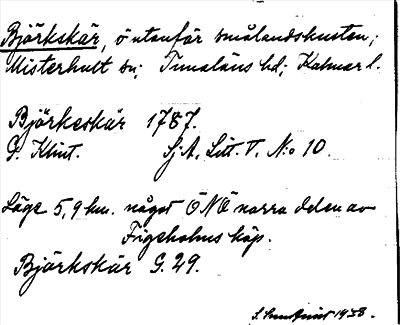 Björkskär, ö utanför smålandskusten;
Misterhult sn; Tunaläns hd; Kalmar l.
Björkeskär 1787.
G. Klint. Sj.A. Litt. V. N:o 10.
Läge 5,9 km. något ÖNÖ norra delen av
Figeholms köp.
Björkskär G. 29.
S. 1938.